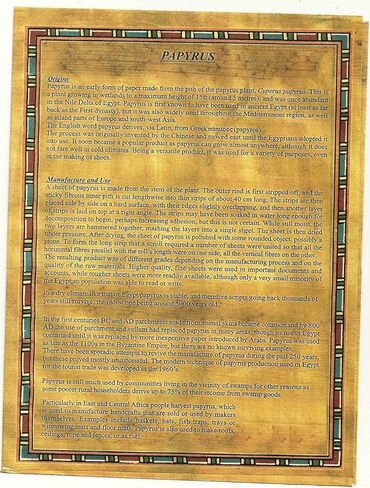 PAPYRUS
Origins
Papyrus is an early form of paper made from the pith of the papyrus plant, Cyperus papyrus. This is
a plant growing in wetlands to a maximum height of 15ft (around 5 metres), and was once abundant
in the Nile Delta of Egypt. Papyrus is first known to have been used in ancient Egypt (at least as far
back as the First dynasty), but it was also widely used throughout the Mediterranean region, as well
as inland parts of Europe and south-west Asia.
The English word papyrus derives, via Latin, from Greek πάπυρος (papyros).
The process was originally invented by the Chinese and moved east until the Egyptians adopted it
into use. It soon became a popular product as papyrus can grow almost anywhere, although it does
not fare well in cold climates. Being a versatile product, it was used for a variety of purposes, even
in the making of shoes.
Manufacture and Use
A sheet of papyrus is made from the stem of the plant. The outer rind is first stripped off, and the
sticky fibrous inner pith is cut lengthwise into thin strips of about 40 cm long. The strips are then
placed side by side on a hard surface, with their edges slightly overlapping, and then another layer
of strips is laid on top at a right angle. The strips may have been soaked in water long enough for
decomposition to begin, perhaps increasing adhesion, but this is not certain. While still moist, the
two layers are hammered together, mashing the layers into a single sheet. The sheet is then dried
under pressure. After drying, the sheet of papyrus is polished with some rounded object, possibly a
stone. To form the long strip that a scroll required a number of sheets were united so that all the
horizontal fibres parallel with the roll's length were on one side, all the vertical fibres on the other
The resulting product was of different grades depending on the manufacturing process and on the
quality of the raw materials. Higher quality, fine sheets were used in important documents and
accounts, while rougher sheets were more readily available, although only a very small minority of
the Egyptian population was able to read or write.
In a dry climate like that of Egypt papyrus is stable, and therefore scripts going back thousands of
years still survive, the oldest option being around 5000 years old.
In the first centuries BC and AD parchments made from animal skins became common and by 800
AD the use of parchment and vellum had replaced papyrus in many areas, though its use in Egypt
continued until it was replaced by more inexpensive paper introduced by Arabs. Papyrus was used
as late as the 1100s in the Byzantine Empire, but there are no known surviving examples.
There have been sporadic attempts to revive the manufacture of papyrus during the past 250 years,
but these proved mostly unsuccessful. The modern technique of papyrus production used in Egypt
for the tourist trade was developed in the 1960's.
Papyrus is still much used by communities living in the vicinity of swamps for other reasons as
some poorer rural householders derive up to 75% of their income from swamp goods.
Particularly in East and Central Africa people harvest papyrus, which
is used to manufacture handicrafts that are sold or used by makers
themselves. Examples include baskets, hats, fish traps, trays or
winnowing mats and floor mats. Papyrus is also used to make roofs,
ceilings, rope and fences, or as fuel.